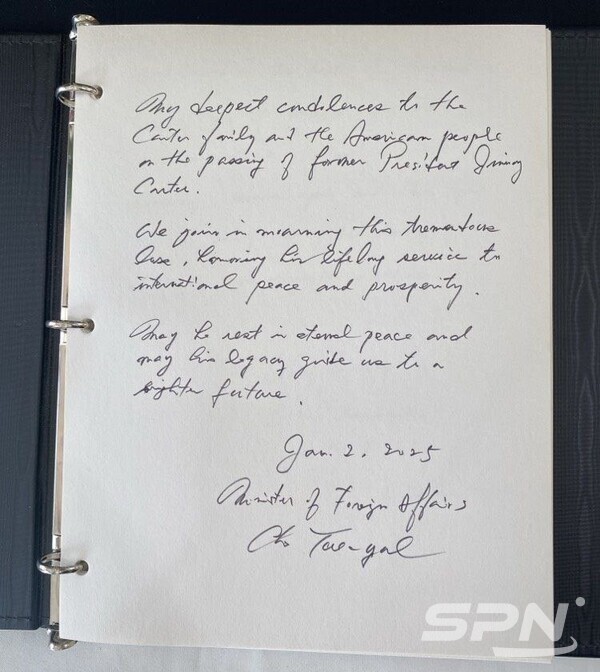 My deepest condolences to the
Carter family and the American people
on the passing of former President Jimmy
Carter.
We join in mourning this tremendous
loss, honoring his lifelong service to
international peace and prosperity.
May he rest in eternal peace and
may his legacy guide us to a
brighter future.
Jan. 2, 2025
Minister of Foreign Affairs
Cho Tae-yul
SPN